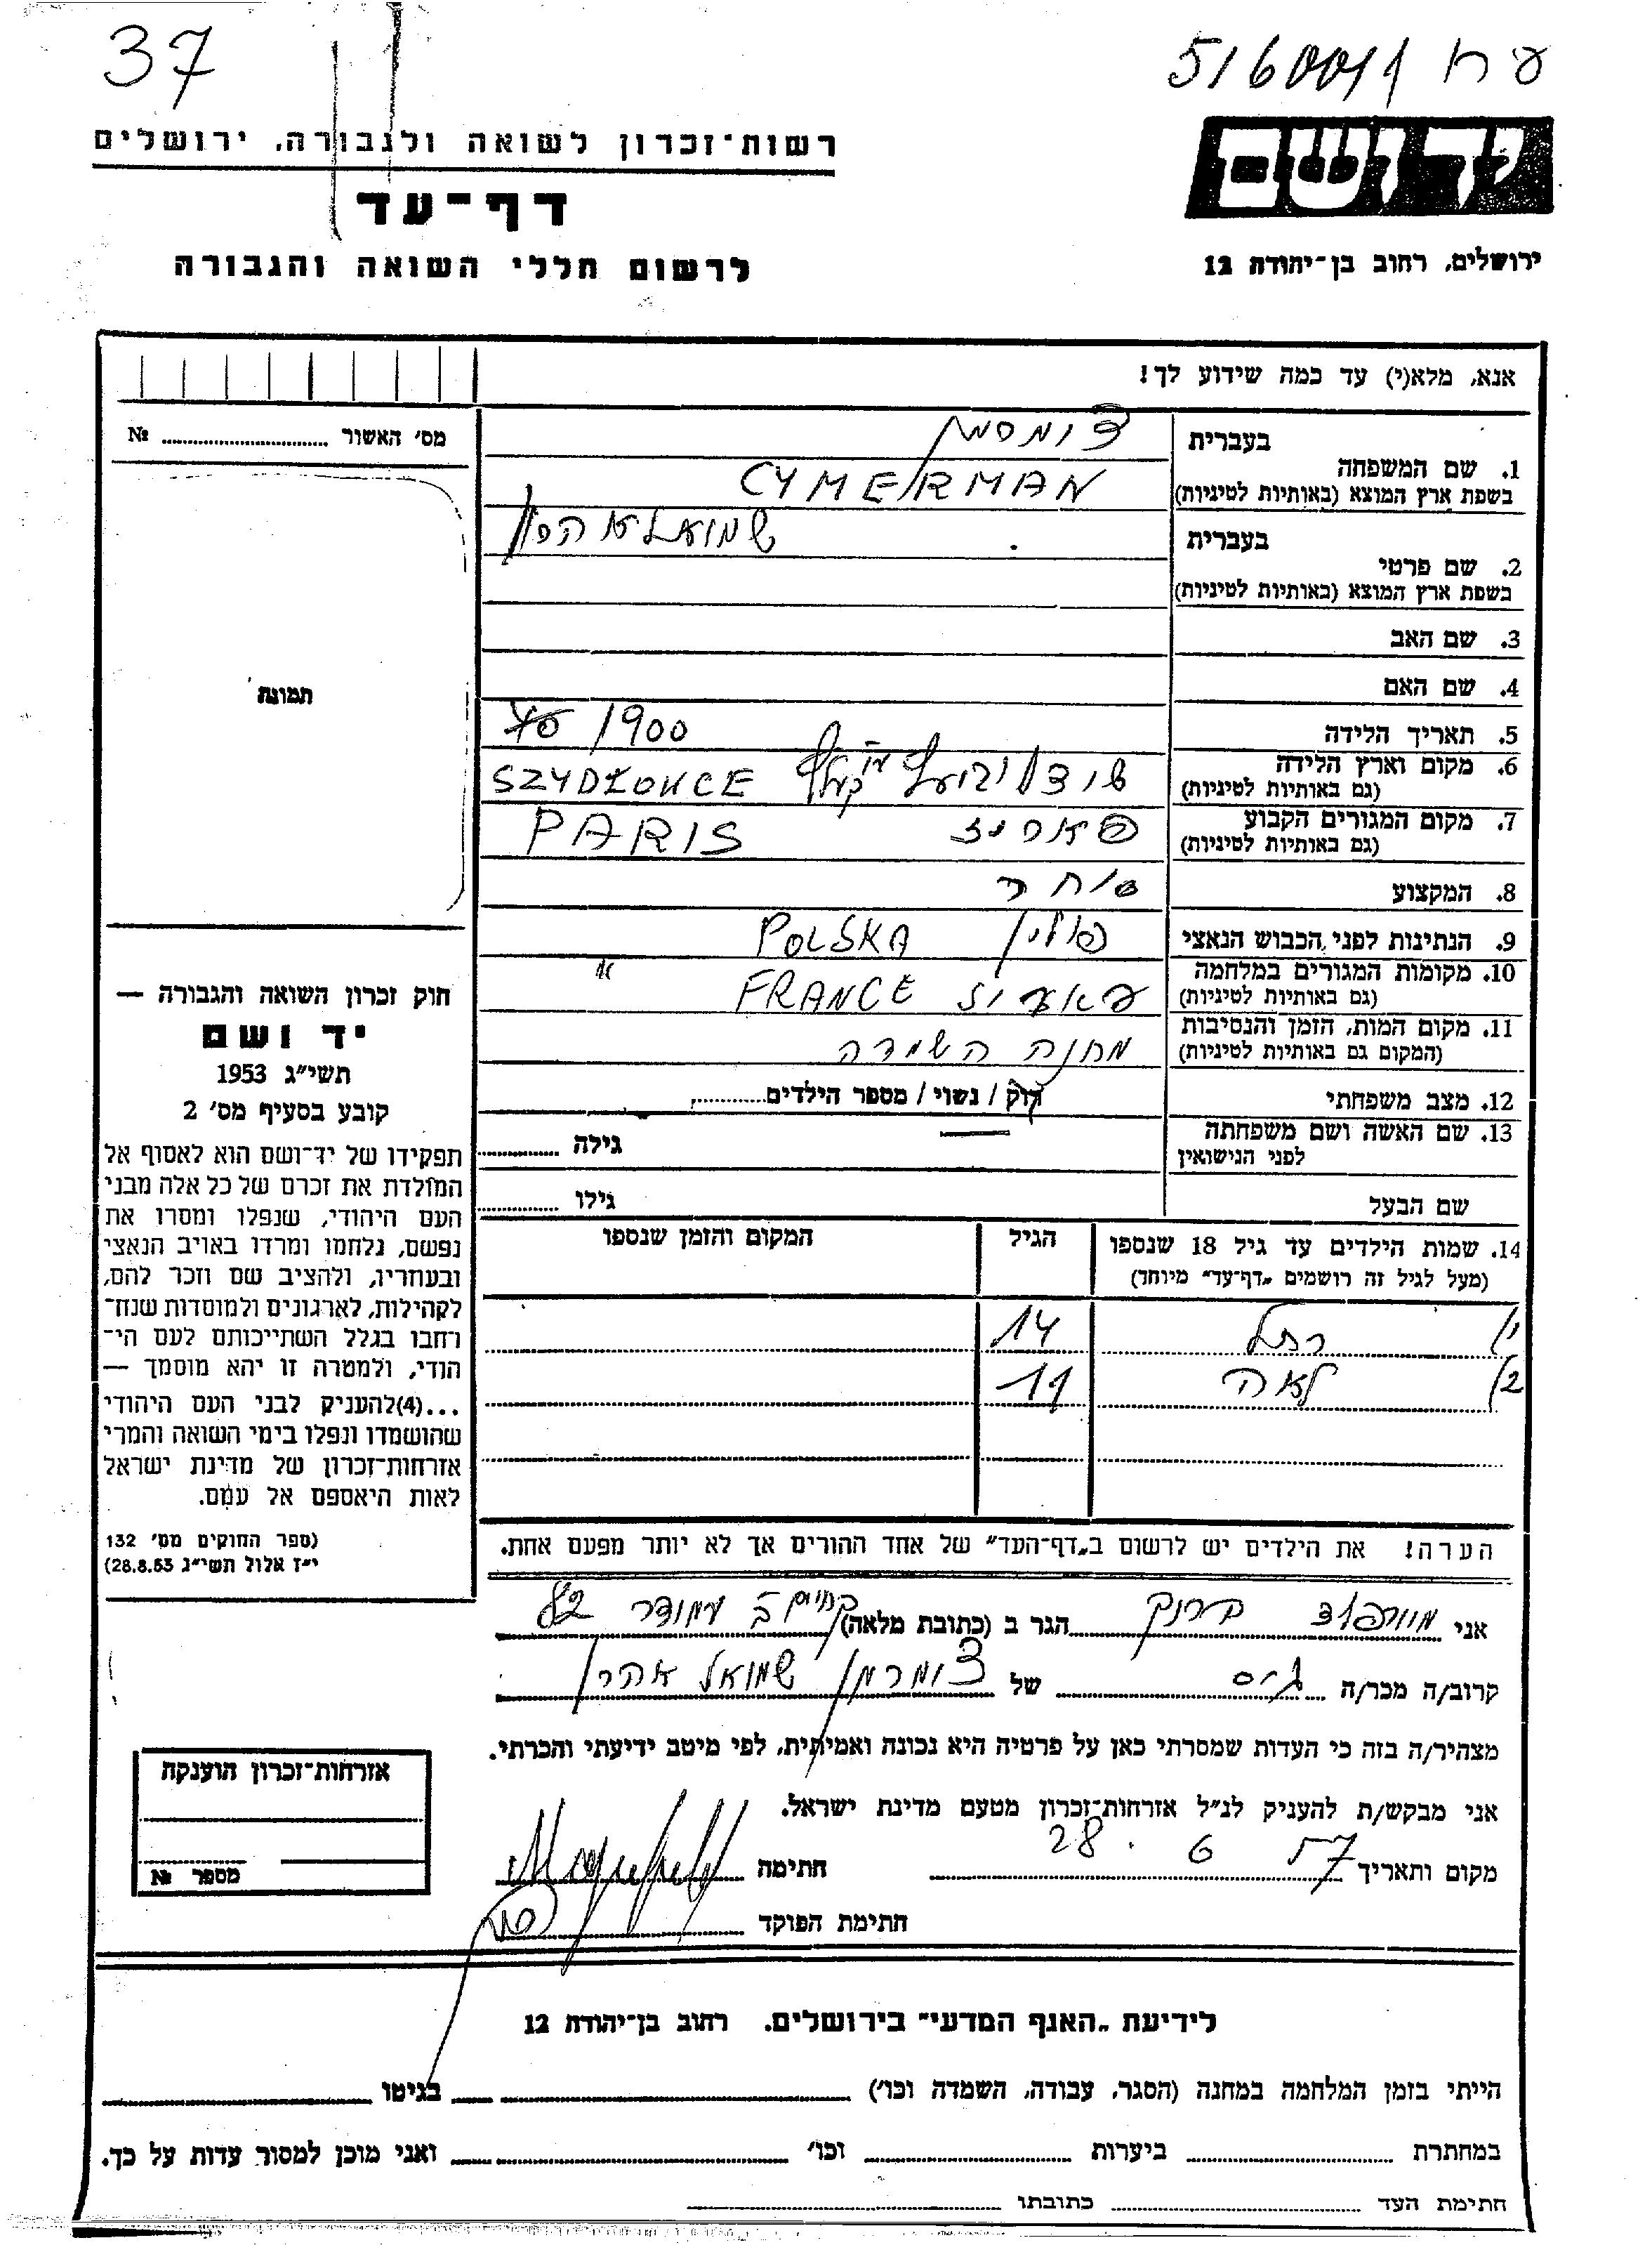 37
5160011 ע ח
רשות־זכרון לשואה ולגבורה, ירושלים
ידושם
דף־עד
לרשום חללי השואה והגבורה
ירושלים, רחוב בן־יהודה 12
אנא, מלא(י) עד כמה שידוע לך!
מס׳ האשור № ........
בעברית
1. שם המשפחה
בשפת ארץ המוצא (באותיות לטיניות) CYMERMAN
בעברית
2. שם פרטי
בשפת ארץ המוצא (באותיות לטיניות)
3. שם האב
4. שם האם
תמונה
5. תאריך הלידה 1900
6. מקום וארץ הלידה
(גם באותיות לטיניות) SZYDŁOWCE
7. מקום המגורים הקבוע פאריז PARIS
(גם באותיות לטיניות)
8. המקצוע סוחר
9. הנתינות לפני הכבוש הנאצי פולין POLSKA
10. מקומות המגורים במלחמה
(גם באותיות לטיניות) פאריז FRANCE
11. מקום המות, הזמן והנסיבות
(המקום גם באותיות לטיניות) מחנה השמדה
12. מצב משפחתי רוק / נשוי / מספר הילדים........
13. שם האשה ושם משפחתה גילה ........
לפני הנישואין
שם הבעל גילו ........
14. שמות הילדים עד גיל 18 שנספו הגיל המקום והזמן שנספו
(מעל לגיל זה רושמים „דף־עד״ מיוחד)
1) רחל 14
2) לאה 11
הערה! את הילדים יש לרשום ב„דף־העד״ של אחד ההורים אך לא יותר מפעם אחת.
חוק זכרון השואה והגבורה —
יד ושם
תשי״ג 1953
קובע בסעיף מס׳ 2
תפקידו של יד־ושם הוא לאסוף אל
המולדת את זכרם של כל אלה מבני
העם היהודי, שנפלו ומסרו את
נפשם, נלחמו ומרדו באויב הנאצי
ובעוזריו, ולהציב שם וזכר להם,
לקהילות, לארגונים ולמוסדות שנח־
רחבו בגלל השתייכותם לעם הי־
הודי, ולמטרה זו יהא מוסמך —
...(4)להעניק לבני העם היהודי
שהושמדו ונפלו בימי השואה והמרי
אזרחות־זכרון של מדינת ישראל
לאות היאספם אל עמם.
(ספר החוקים מס׳ 132
י״ז אלול תשי״ג 28.8.53)
אני ........ הגר ב (כתובת מלאה)
קרוב/ה מכר/ה גיס של צומרמן שמואל אהרן
מצהיר/ה בזה כי העדות שמסרתי כאן על פרטיה היא נכונה ואמיתית, לפי מיטב ידיעתי והכרתי.
אני מבקש/ת להעניק לנ״ל אזרחות־זכרון מטעם מדינת ישראל.
מקום ותאריך 28. 6 57 חתימה
חתימת הפוקד
אזרחות־זכרון הוענקה
מספר №
לידיעת „האגף המדעי״ בירושלים. רחוב בן־יהודה 12
הייתי בזמן המלחמה במחנה (הסגר, עבודה, השמדה וכו׳) ........ בגיטו ........
במחתרת ........ ביערות ........ וכו׳ ........ ואני מוכן למסור עדות על כך.
חתימת העד ........ כתובתו ........